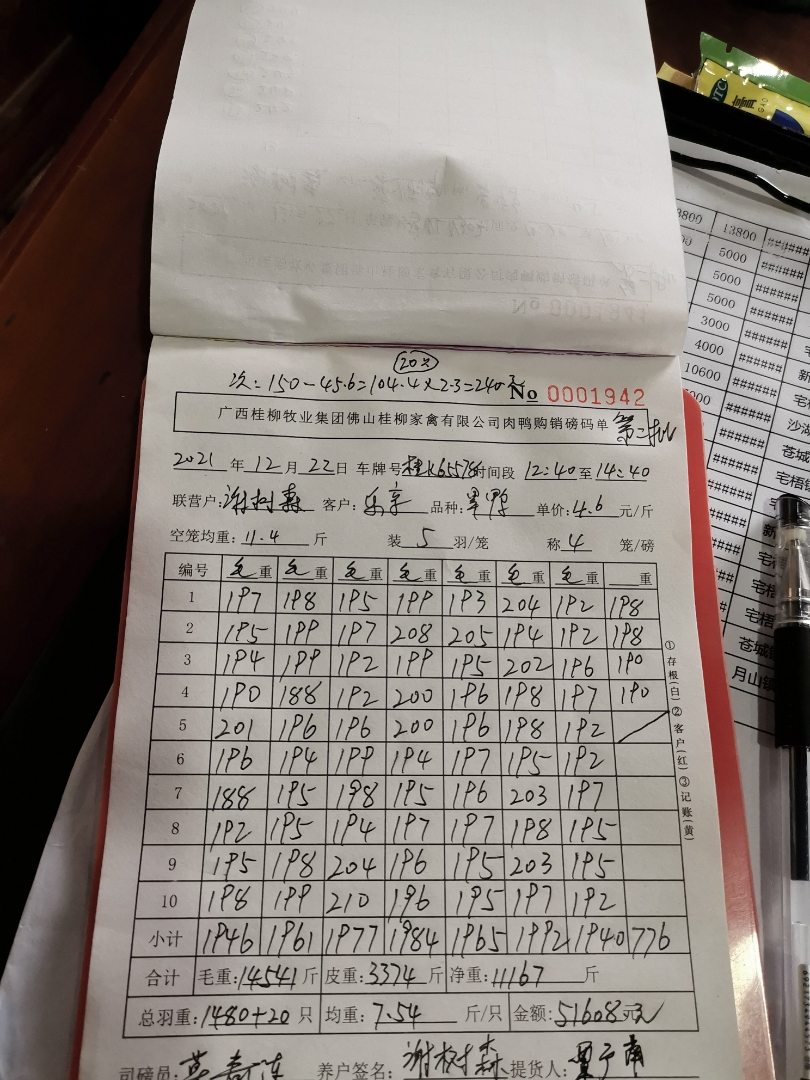 20只
次: 150-45.6=104.4×2.3=240元
No 0001942
广西桂柳牧业集团佛山桂柳家禽有限公司肉鸭购销磅码单 第二批
2021 年 12 月 22 日 车牌号 桂K65578 时间段 12:40 至 14:40
联营户: 谢树森 客户: 乐享 品种: 单鸭 单价: 4.6 元/斤
空笼均重: 11.4 斤 装 5 羽/笼 称 4 笼/磅
编号 毛重 毛重 毛重 毛重 毛重 毛重 毛重 重
1 197 198 195 199 193 204 192 198
2 195 199 197 208 205 194 192 198
3 194 199 192 199 195 202 196 190
4 190 188 192 200 196 198 197 190
5 201 196 196 200 196 198 192
6 196 194 199 194 197 195 192
7 188 195 198 195 196 203 197
8 192 195 194 197 197 198 195
9 195 198 204 196 195 203 195
10 198 199 210 196 195 197 192
小计 1946 1961 1977 1984 1965 1992 1940 776
合计 毛重: 14541 斤 皮重: 3374 斤 净重: 11167 斤
总羽重: 1480+20 只 均重: 7.54 斤/只 金额: 51608元
司磅员: 养户签名: 谢树森 提货人:
①存根(白)②客户(红)③记账(黄)
3800 13800 ######
5000 ######
5000 ######
5000 ######
3000 ######
4000 ######
10600 ######
######
沙湖
苍城
宅梧镇
宅梧
苍城
月山镇